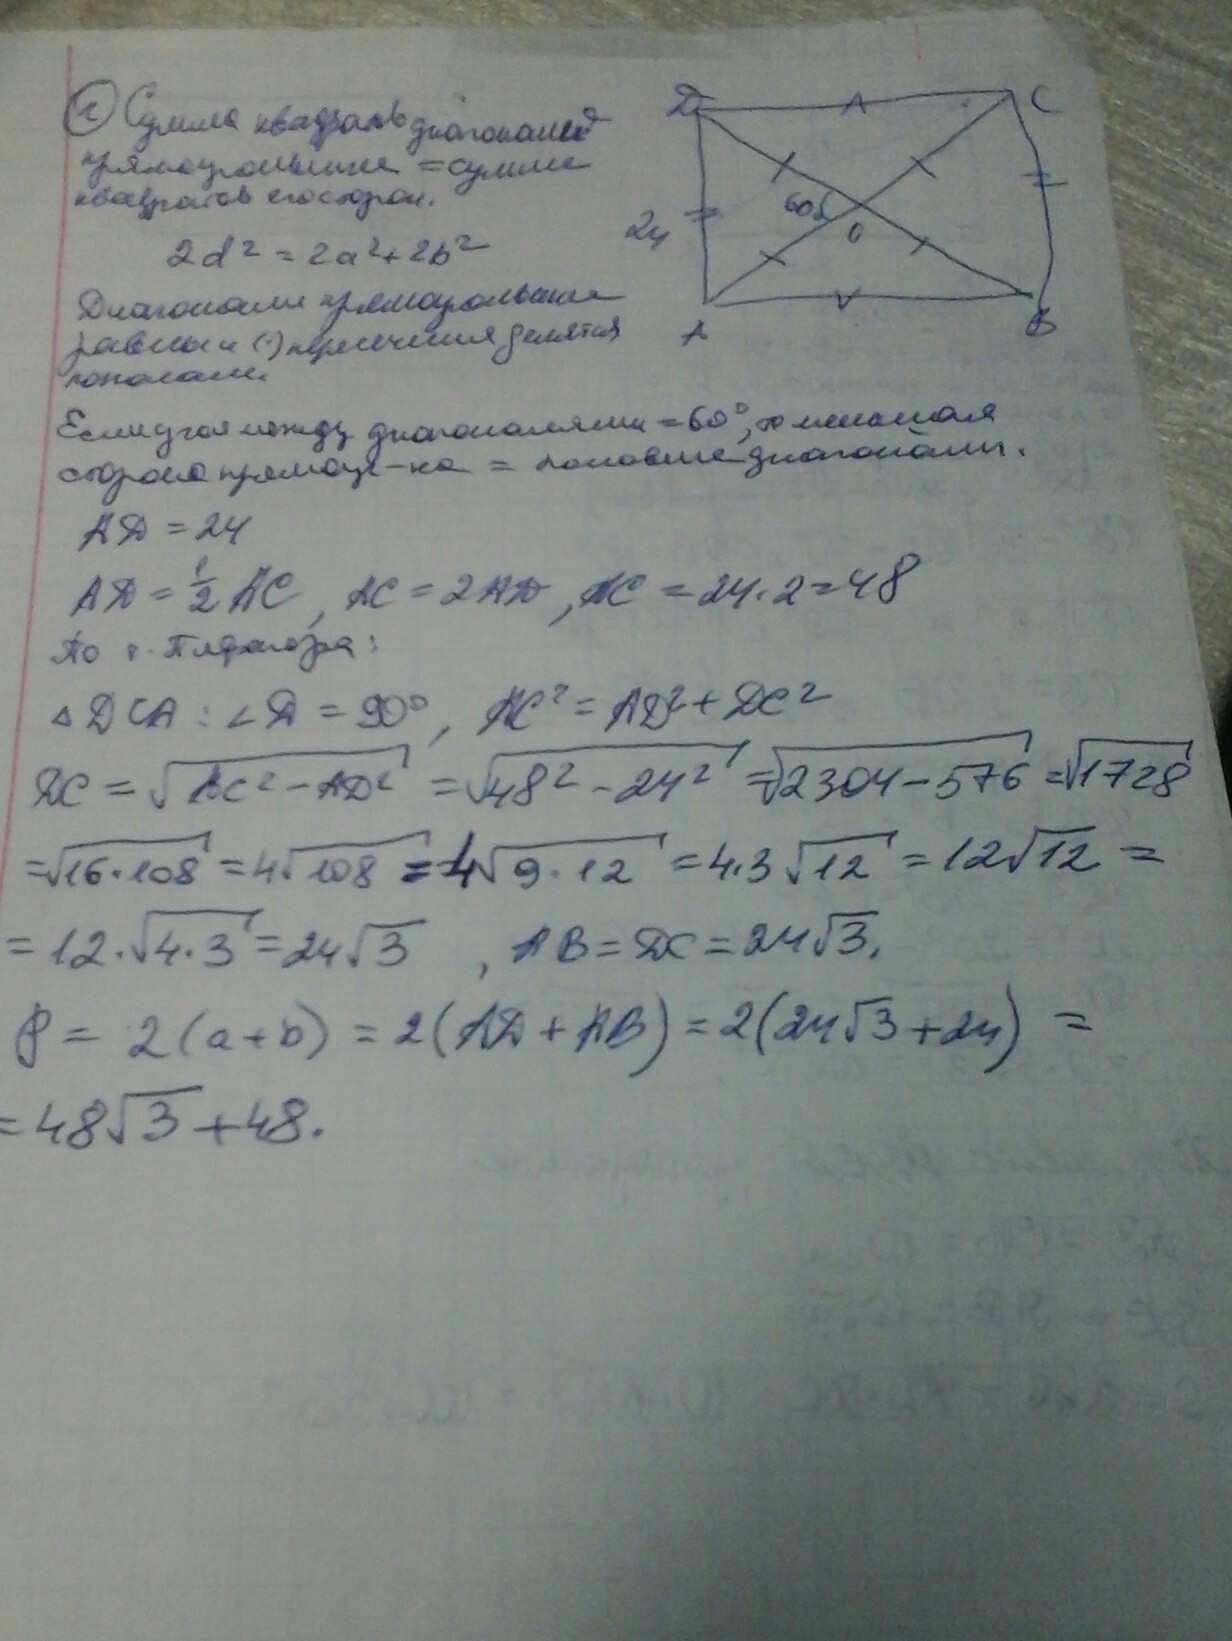 ① Сумма квадратов диагоналей
прямоугольника = сумме
квадратов его сторон.
2d² = 2a² + 2b²
Диагонали прямоугольника
равны и (·) пересечения делятся
пополам.
D
C
24
60°
O
A
B
Если угол между диагоналями = 60°, то меньшая
сторона прямоуг-ка = половине диагонали.
AD = 24
AD = 1/2 AC, AC = 2AD, AC = 24·2 = 48
По т. Пифагора:
△DCA: ∠D = 90°, AC² = AD² + DC²
DC = √(AC² - AD²) = √(48² - 24²) = √(2304 - 576) = √1728
= √(16·108) = 4√108 = 4√(9·12) = 4·3√12 = 12√12 =
= 12·√(4·3) = 24√3, AB = DC = 24√3.
P = 2(a+b) = 2(AD + AB) = 2(24√3 + 24) =
= 48√3 + 48.